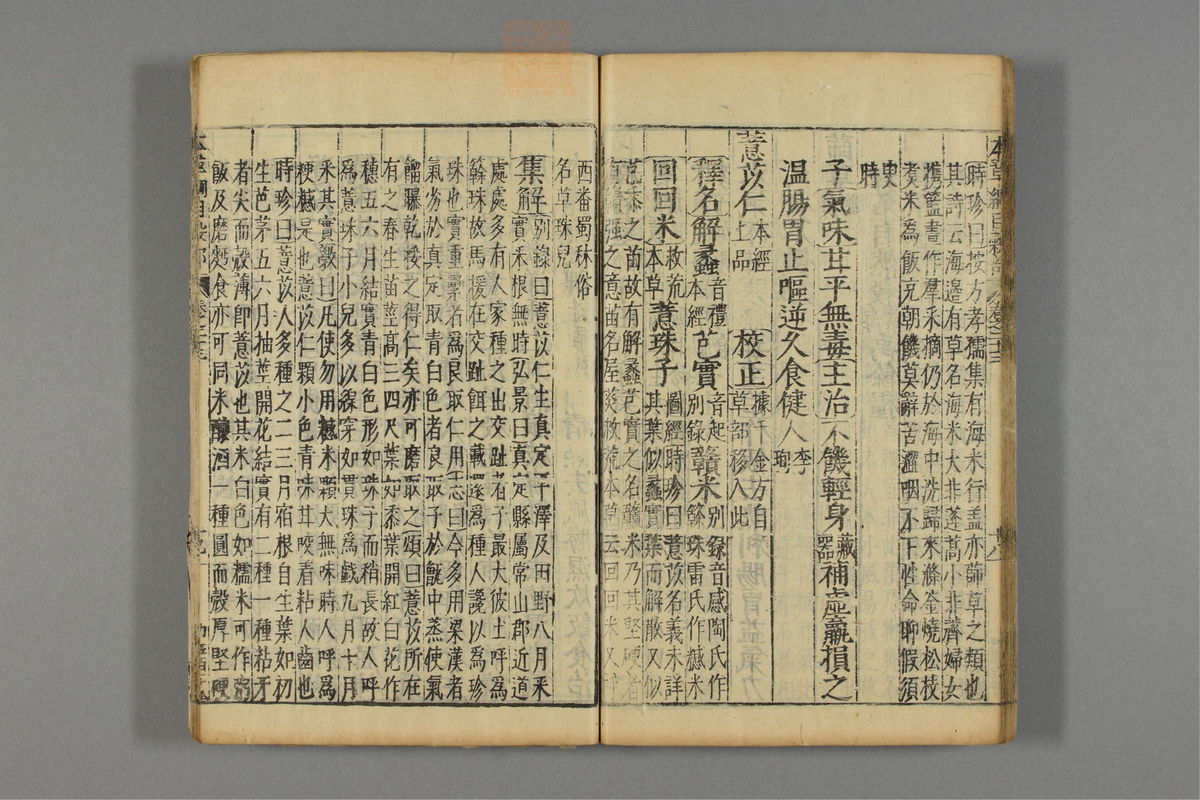 時珍曰按方孝孺集有海米行盖亦蒒草之類也
其詩云海邊有草名海米大非蓬蒿小非薺婦女
携籃晝作羣采摘仍於海中洗歸來滌釜燒松枝
煑米為飯充朝饑莫辭苦澀咽不下性命聊假須
臾時
子氣味甘平無毒主治不饑輕身藏器補虛羸損之
温腸胃止嘔逆久食健人李珣
薏苡仁本經上品 校正據千金方自草部移入此
釋名解蠡音禮本經芑實音起別錄贛米別錄音感陶氏作
𥽇珠雷氏作𥼷米
回回米救荒本草薏珠子圖經時珍曰薏苡名義未詳
其葉似蠡實葉而解散又似
芑黍之苗故有解蠡芑實之名贛米乃其堅硬者
有贛强之意苗名屋菼救荒本草云回回米又呼
西番蜀秫俗
名草珠兒
集解別錄曰薏苡仁生真定平澤及田野八月采
實采根無時弘景曰真定縣屬常山郡近道
處處多有人家種之出交趾者子最大彼土呼為
𥽇珠故馬援在交趾餌之載還為種人讒以為珍
珠也實重累者為良取仁用志曰今多用梁漢者
氣劣於真定取青白色者良取子於甑中蒸使氣
餾曝乾挼之得仁矣亦可磨取之頌曰薏苡所在
有之春生苗莖高三四尺葉如黍葉開紅白花作
穗五六月結實青白色形如珠子而稍長故人呼
為薏珠子小兒多以線穿如貫珠為戲九月十月
采其實斅曰凡使勿用𥼷米顆大無味時人呼為
粳𥼷是也薏苡仁顆小色青味甘咬着粘人齒也
時珍曰薏苡人多種之二三月宿根自生葉如初
生芭茅五六月抽莖開花結實有二種一種粘牙
者尖而殼薄即薏苡也其米白色如糯米可作粥
飯及磨麪食亦可同米釀酒一種圓而殼厚堅硬